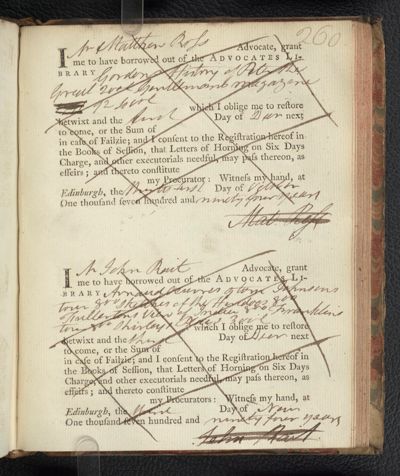 260
I Mr Matthew Ross Advocate, grant
me to have borrowed out of the ADVOCATES LI-
BRARY Gordon's History of Peter the
Great 2 vols Gentlemans magazine
which I oblige me to restore
betwixt and the third Day of next
to come, or the Sum of
in case of Failzie; and I consent to the Registration hereof in
the Books of Session, that Letters of Horning on Six Days
Charge, and other executorials needful, may pass thereon, as
effeirs; and thereto constitute
my Procurator: Witness my hand, at
Edinburgh, the Day of October
One thousand seven hundred and ninety four years
Mat. Ross
I Mr John Rait Advocate, grant
me to have borrowed out of the ADVOCATES LI-
BRARY Johnsons
tour Sketches of the Hindoos
Fullertons View of India Franklin's
tour which I oblige me to restore
betwixt and the third Day of next
to come, or the Sum of
in case of Failzie; and I consent to the Registration hereof in
the Books of Session, that Letters of Horning on Six Days
Charge, and other executorials needful, may pass thereon, as
effeirs; and thereto constitute
my Procurators: Witness my hand, at
Edinburgh, the third Day of Novr
One thousand seven hundred and ninety four years
John Rait